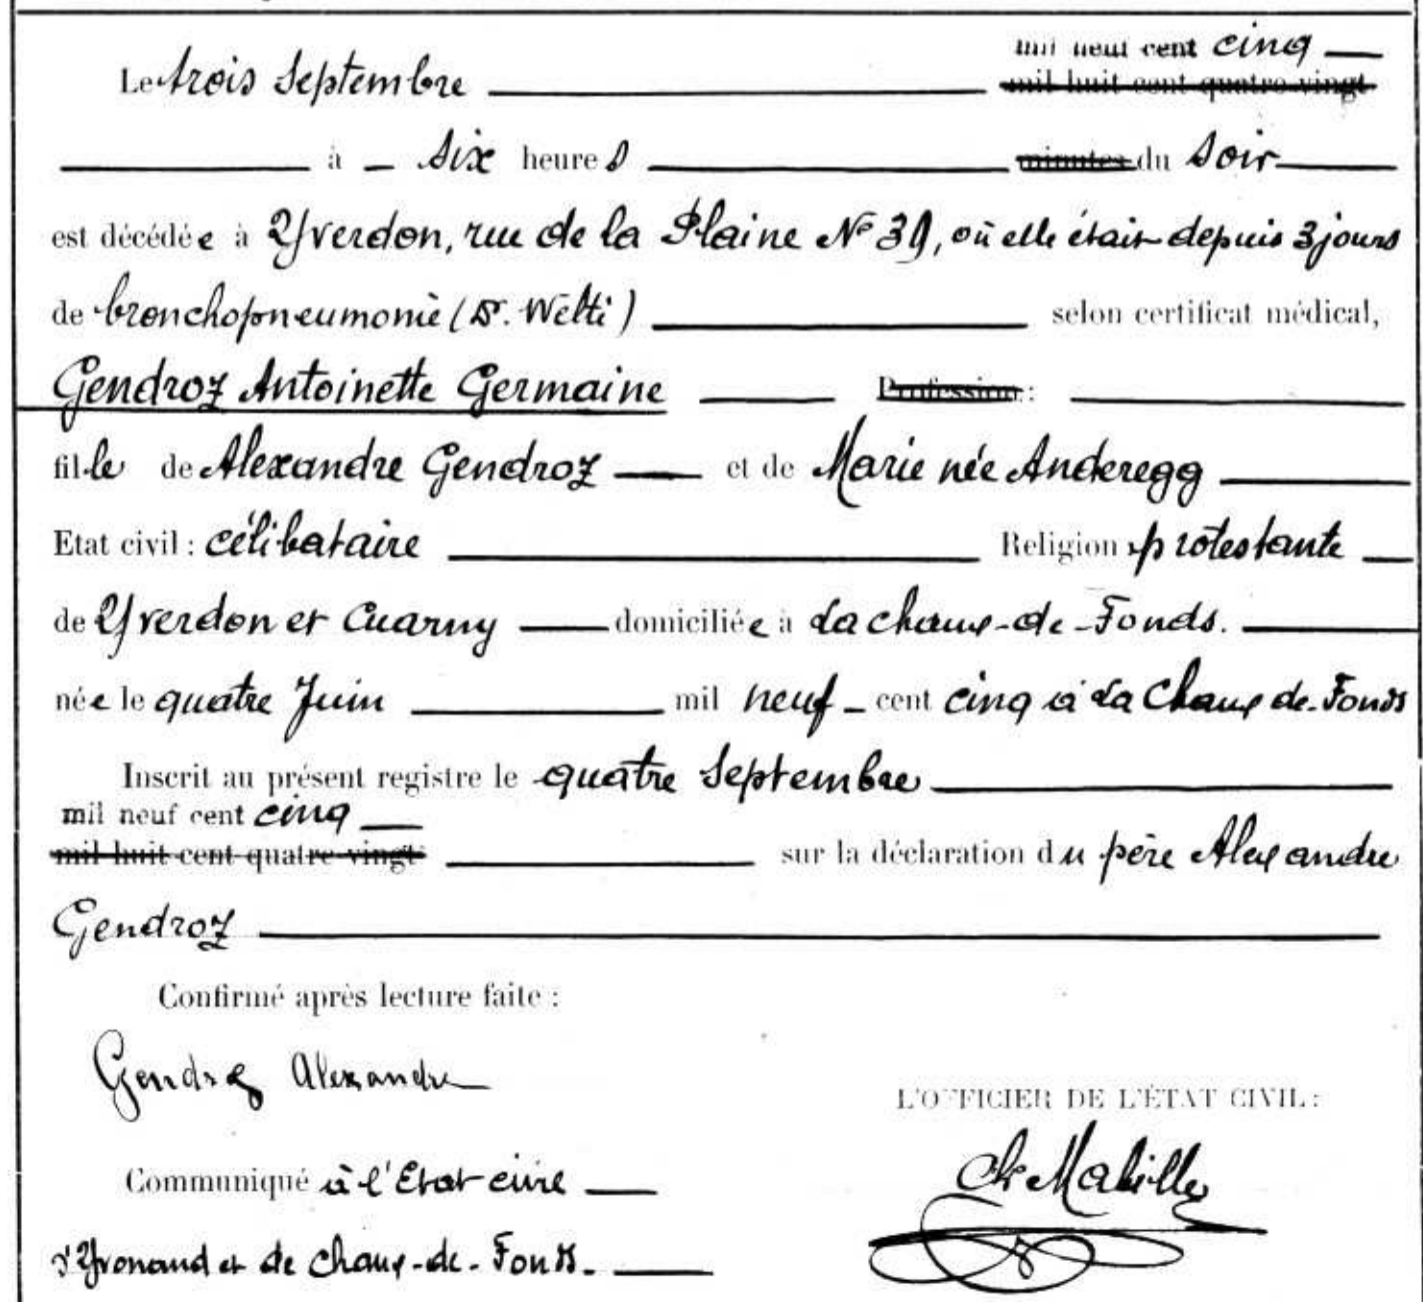 mil neuf cent cinq
Le trois Septembre mil huit cent quatre-vingt
à six heures minutes du soir
est décédée à Yverdon, rue de la Plaine No 39, où elle était depuis 3 jours
de bronchopneumonie (Dr. Welti) selon certificat médical,
Gendroz Antoinette Germaine Profession :
fille de Alexandre Gendroz et de Marie née Anderegg
Etat civil : célibataire Religion protestante
de Yverdon et Cuarny domiciliée à La Chaux-de-Fonds.
née le quatre Juin mil neuf cent cinq à La Chaux de-Fonds
Inscrit au présent registre le quatre Septembre
mil neuf cent cinq
mil huit cent quatre-vingt sur la déclaration du père Alexandre
Gendroz
Confirmé après lecture faite :
Gendroz Alexandre
L'OFFICIER DE L'ÉTAT CIVIL :
Communiqué à l'Etat civil
Ch Mabille
d'Yvonand et de Chaux-de-Fonds.